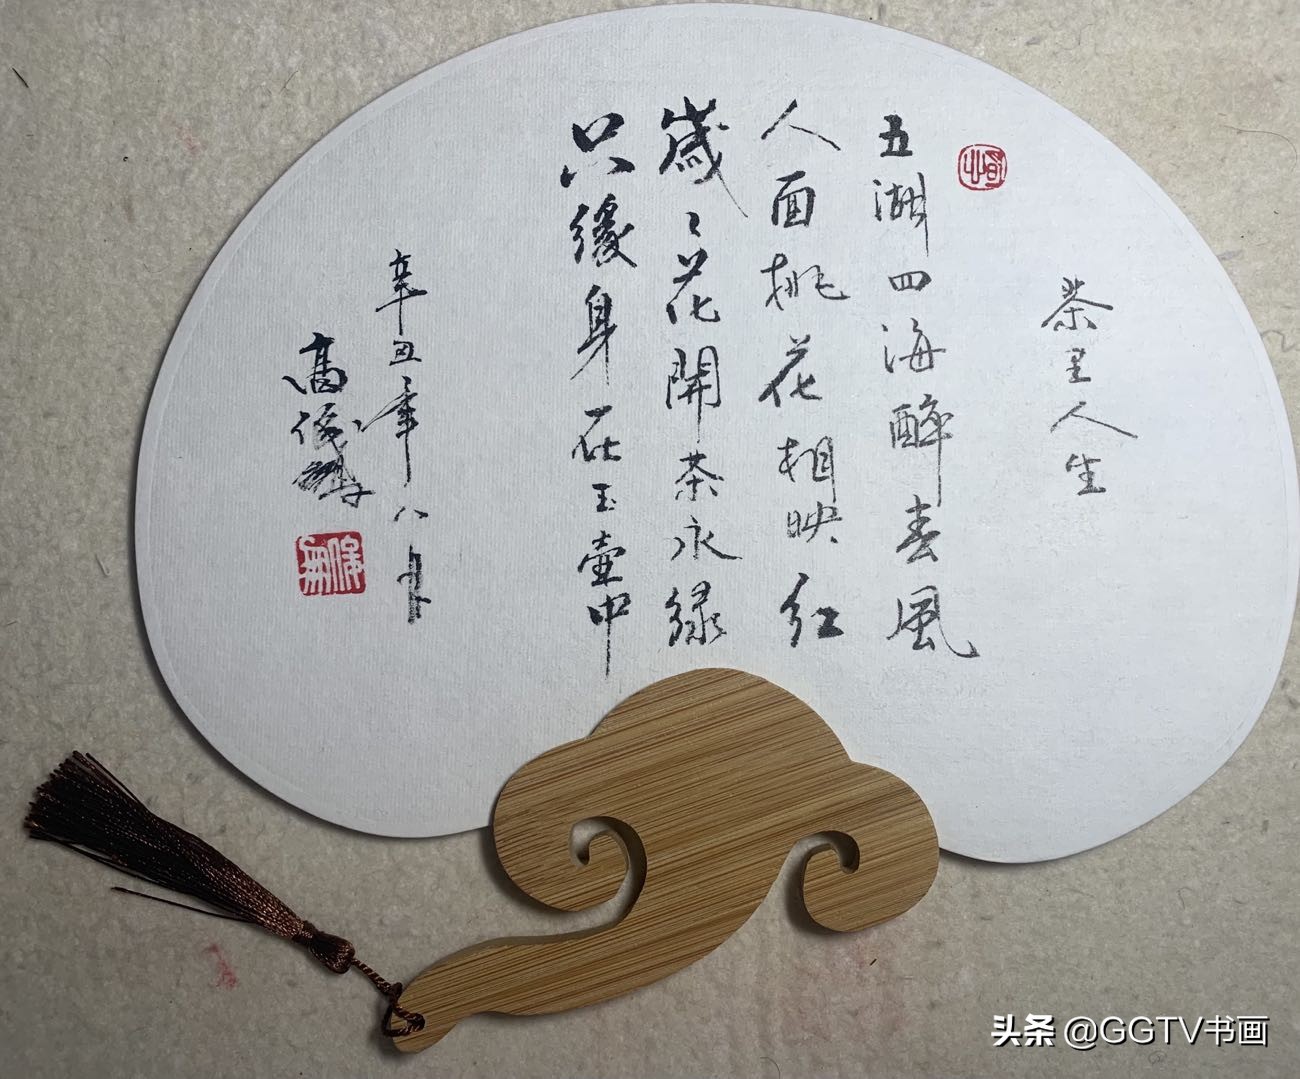 茶里人生
五湖四海醉春風
人面桃花相映红
歲〻花開茶永緑
只缘身在玉壶中
辛丑年八月
高俊
头条 @GGTV书画